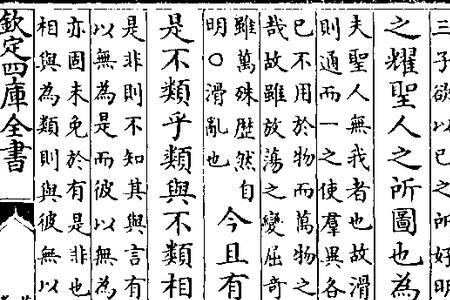 三子欲以已之所好明
之耀聖人之所圖也為
夫聖人無我者也故滑
則通而一之使羣異各
已不用於物而萬物之
哉故雖放蕩之變屈奇
雖萬殊歴然自
明○滑亂也
今且有
是不類乎類與不類相
是非則不知其與言有
以無為是而彼以無為
亦固未免於有是非也
相與為類則與彼無以
欽定四庫全書